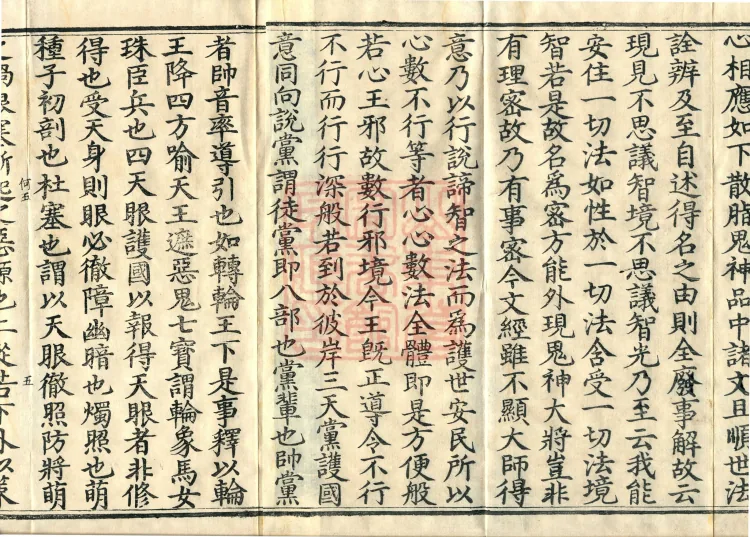 心相應如下散脂鬼神品中諸文且順世法
詮辨及至自述得名之由則全廢事解故云
現見不思議智境不思議智光乃至云我能
安住一切法如性於一切法含受一切法境
智若是故名爲密方能外現鬼神大將豈非
有理密故乃有事密今文經雖不顯大師得
意乃以行說諦智之法而爲護世安民所以
心數不行等者心心數法全體即是方便般
若心王邪故數行邪境今王旣正導令不行
不行而行行深般若到於彼岸三天黨護國
意同向說黨謂徒黨即八部也黨輩也帥黨
者帥音率導引也如轉輪王下是事釋以輪
王降四方喻天王遮惡鬼七寶謂輪象馬女
珠臣兵也四天眼護國以報得天眼者非修
得也受天身則眼必徹障幽暗也燭照也萌
種子初剖也杜塞也謂以天眼徹照防將萌
何五
五